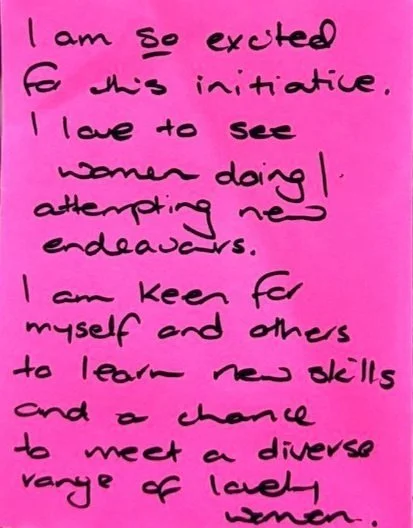 I am so excited
for this initiative.
I love to see
women doing/
attempting new
endeavours.
I am keen for
myself and others
to learn new skills
and a chance
to meet a diverse
range of lovely
women.